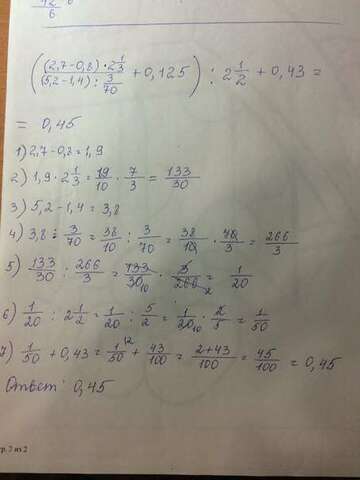 12
6 6
( (2,7-0,8)·2 1/3 / (5,2-1,4) : 3/70 + 0,125 ) : 2 1/2 + 0,43 =
= 0,45
1) 2,7-0,8=1,9
2) 1,9·2 1/3 = 19/10 · 7/3 = 133/30
3) 5,2-1,4=3,8
4) 3,8 : 3/70 = 38/10 : 3/70 = 38/10 · 70/3 = 266/3
5) 133/30 : 266/3 = 133/30 10 · 3/266 2 = 1/20
6) 1/20 : 2 1/2 = 1/20 : 5/2 = 1/20 10 · 2/5 = 1/50
7) 1/50 + 0,43 = 1/50 12 + 43/100 = 2+43/100 = 45/100 = 0,45
Ответ: 0,45
тр. 2 из 2